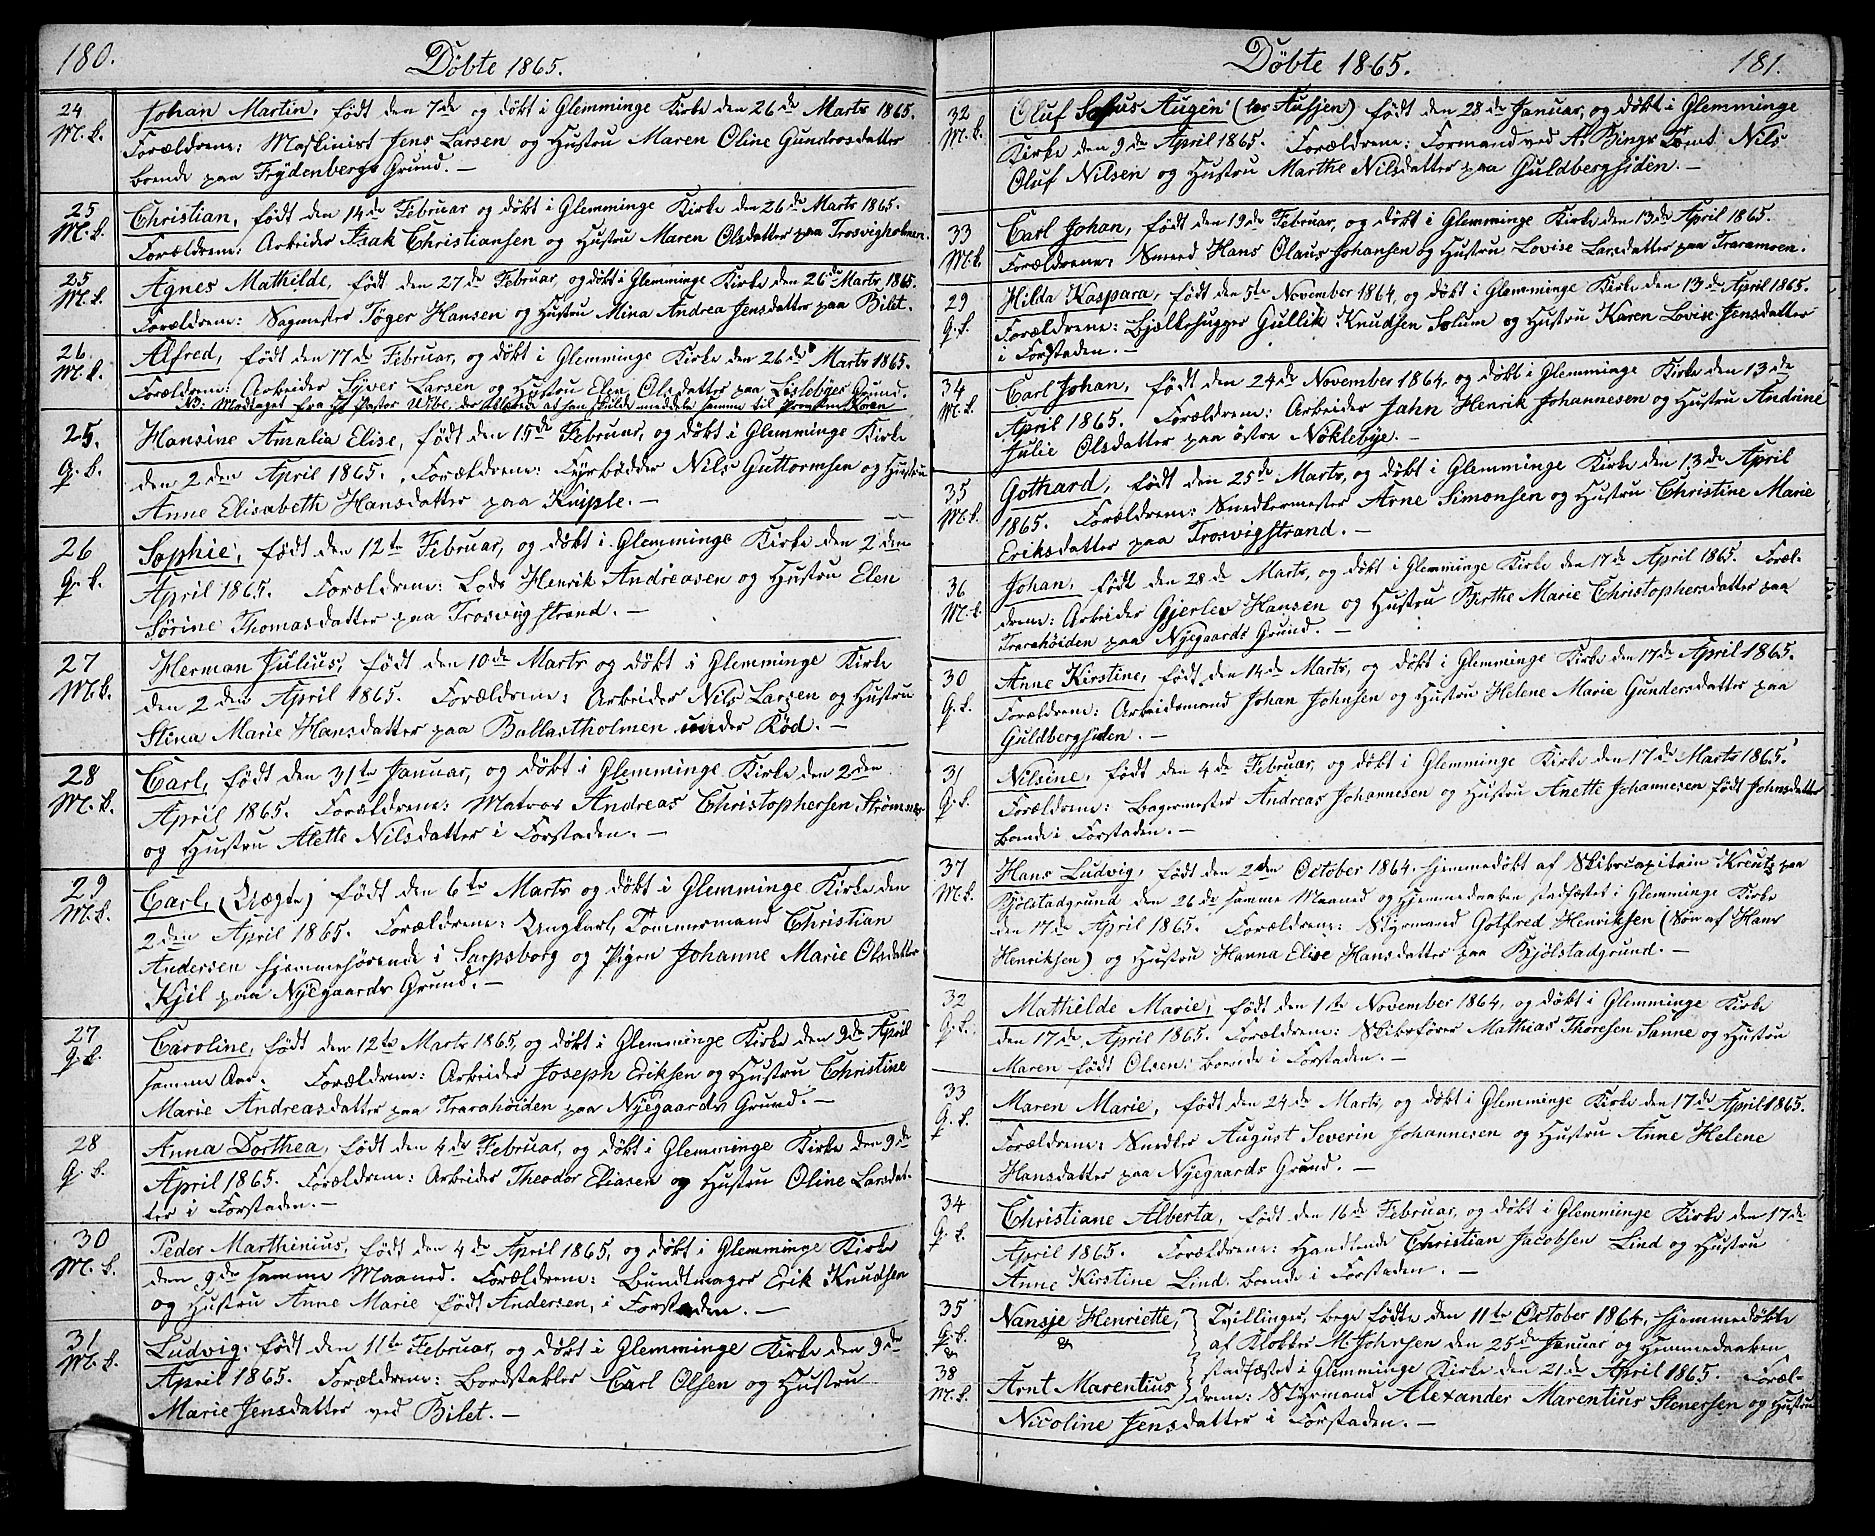 180.
Döbte 1865.
24
M. k.
Johan Martin, født den 7de og døbt i Glemminge Kirke den 26de Marts 1865.
Forældrene: Maskinist Jens Larsen og Hustru Maren Oline Gundrosdatter
boende paa Frydenbergs Grund. —
25
M. k.
Christian, født den 14de Februar og døbt i Glemminge Kirke den 26de Marts 1865.
Forældrene: Arbeider Isak Christiansen og Hustru Maren Olsdatter paa Trosvigholmen.
25
M. k.
Agnes Mathilde, født den 27de Februar, og døbt i Glemminge Kirke den 26de Marts 1865.
Forældrene: Sagmester Töger Hansen og Hustru Mina Andrea Jensdatter paa Bilet.
26.
M. k.
Alfred, født den 17de Februar, og døbt i Glemminge Kirke den 26de Marts 1865.
Forældrene: Arbeider Syver Larsen og Hustru Elen Olsdatter paa Lislebyes Grund.
NB: Modtaget fra Hr Pastor Wibe, der at han skulde meddele samme til Provsten
25.
q. k.
Hansine Amalia Elise, født den 15de Februar, og døbt i Glemminge Kirke
den 2den April 1865. Forældrene: Fyrbødder Nils Guttormsen og Hustru
Anne Elisabeth Hansdatter paa Kniple. —
26
q. k.
Sophie, født den 12te Februar, og døbt i Glemminge Kirke den 2den
April 1865. Forældrene: Lods Henrik Andreasen og Hustru Elen
Sörine Thomasdatter paa Trosvigstrand. —
27
M. k.
Herman Julius, født den 10de Marts og døbt i Glemminge Kirke
den 2den April 1865. Forældrene: Arbeider Nils Larsen og Hustru
Stina Marie Hansdatter paa Ballastholmen under Rød. —
28
M. k.
Carl, født den 31te Januar, og døbt i Glemminge Kirke den 2den
April 1865. Forældrene: Matros Andreas Christophersen Strömnes
og Hustru Alette Nilsdatter i Forstaden. —
29
M. k.
Carl, (Uægte) født den 6te Marts og døbt i Glemminge Kirke den
2den April 1865. Forældrene: Ungkarl, Tömmermand Christian
Andersen hjemmehørende i Sarpsborg og Pigen Johanne Marie Olsdatter
Kjil paa Nyegaards Grund. —
27
q. k.
Caroline, født den 12te Marts 1865, og døbt i Glemminge Kirke den 9de April
samme Aar. Forældrene: Arbeider Joseph Eriksen og Hustru Christine
Marie Andreasdatter paa Trarahöiden paa Nyegaards Grund. —
28
q. k.
Anna Dorthea, født den 4de Februar, og døbt i Glemminge Kirke den 9de
April 1865. Forældrene: Arbeider Theodor Eliasen og Hustru Oline Larsdat-
ter i Forstaden. —
30
M. k.
Peder Marthinius, født den 4de April 1865, og døbt i Glemminge Kirke
den 9de samme Maaned. Forældrene: Bundtmager Erik Knudsen
og Hustru Anne Marie født Andersen, i Forstaden. —
31
M. k.
Ludvig, født den 11te Februar, og døbt i Glemminge Kirke den 9de
April 1865. Forældrene: Bordstabler Carl Olsen og Hustru
Marie Jensdatter ved Bilet. —
Döbte 1865.
181.
32
M. k.
Oluf Sofus Augen (lær Ausjen) født den 28de Januar, og døbt i Glemminge
Kirke den 9de April 1865. Forældrene: Formand ved A. Bings Tomt Nils
Oluf Nilsen og Hustru Marthe Nilsdatter paa Guldbergsiden. —
33
M. k.
Carl Johan, født den 19de Februar, og døbt i Glemminge Kirke den 13de April 1865.
Forældrene: Smed Hans Olaus Johansen og Hustru Lovise Larsdatter paa Traramoen.
29
q. k.
Hilda Kaspara, født den 5te November 1864, og døbt i Glemminge Kirke den 13de April 1865.
Forældrene: Bjælkehugger Gullik Knudsen Solum og Hustru Karen Lovise Jensdatter
i Forstaden. —
34
M. k.
Carl Johan, født den 24de November 1864, og døbt i Glemminge Kirke den 13de
April 1865. Forældrene: Arbeider Jahn Henrik Johannesen og Hustru Andrine
Julie Olsdatter paa östre Nöklebye. —
35
M. k.
Gothard, født den 25de Marts, og døbt i Glemminge Kirke den 13de April
1865. Forældrene: Snedkermester Arne Simonsen og Hustru Christine Marie
Eriksdatter paa Trosvigstrand. —
36
M. k.
Johan, født den 28de Marts, og døbt i Glemminge Kirke den 17de April 1865. Foræl-
drene: Arbeider Gjerlev Hansen og Hustru Birthe Marie Christophersdatter paa
Trarahöiden paa Nyegaards Grund. —
30
q. k.
Anne Kirstine, født den 14de Marts, og døbt i Glemminge Kirke den 17de April 1865.
Forældrene: Arbeidsmand Johan Johnsen og Hustru Helene Marie Gundersdatter paa
Guldbergsiden. —
31
q. k.
Nilsine, født den 4de Februar, og døbt i Glemminge Kirke den 17de Marts 1865.
Forældrene: Bagermester Andreas Johannesen og Hustru Anette Johannesen, født Johnsdatter
boende i Forstaden. —
37
M. k.
Hans Ludvig, født den 2den October 1864, hjemmedøbt af Skibscapitain Kreutz paa
Kjölstadgrund den 26de samme Maaned og Hjemmedaaben stadfæstet i Glemminge Kirke
den 17de April 1865. Forældrene: Styrmand Gotfred Henriksen (Søn af Hans
Henriksen) og Hustru Hanna Elise Hansdatter paa Kjölstadgrund. —
32
q. k.
Mathilde Marie, født den 1ste November 1864, og døbt i Glemminge Kirke
den 17de April 1865. Forældrene: Skibsfører Mathias Thoresen Sanne og Hustru
Maren født Olsen, boende i Forstaden. —
33
q. k.
Maren Marie, født den 24de Marts, og døbt i Glemminge Kirke den 17de April 1865.
Forældrene: Snedker August Severin Johannesen og Hustru Anne Helene
Hansdatter paa Nyegaards Grund. —
34
q. k.
Christiane Alberta, født den 16de Februar, og døbt i Glemminge Kirke den 17de
April 1865. Forældrene: Handlende Christian Jacobsen Lind og Hustru
Anne Kirstine Lind, boende i Forstaden. —
35
q. k.
&
38
M. k.
Nansje Henriette, Tvillinger, bege fødte den 11te October 1864, hjemmedøbte
& af Klokker M. Johnsen den 25de Januar og Hjemmedaaben
stadfæstet i Glemminge Kirke den 21de April 1865. Foræl-
Arnt Marentius drene: Styrmand Alexander Marentius Stenersen og Hustru
Nicoline Jensdatter i Forstaden. —